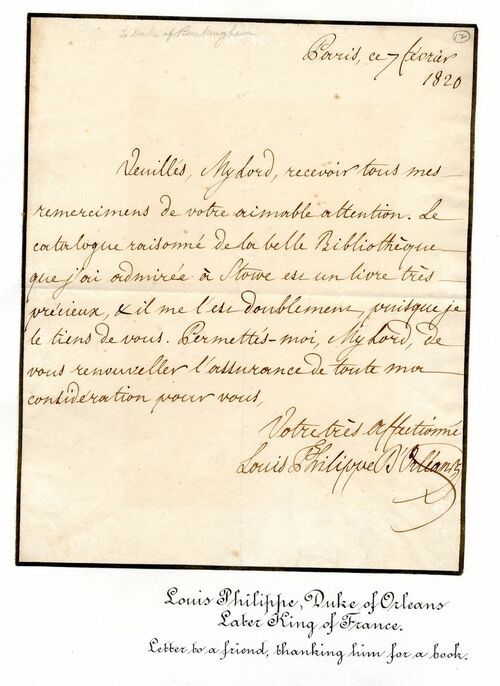 To Duke of Buckingham
12
Paris, ce 7 février
1820
Veuillés, My Lord, recevoir tous mes
remercimens de votre aimable attention. Le
catalogue raisonné de la belle Bibliothèque
que j'ai admirée à Stowe est un livre très
précieux, & il me l'est doublement, puisque je
le tiens de vous. Permettés-moi, My Lord, de
vous renouveller l'assurance de toute ma
considération pour vous,
Votre très affectionné
Louis Philippe D'Orléans
Louis Philippe, Duke of Orleans
Later King of France.
Letter to a friend, thanking him for a book.